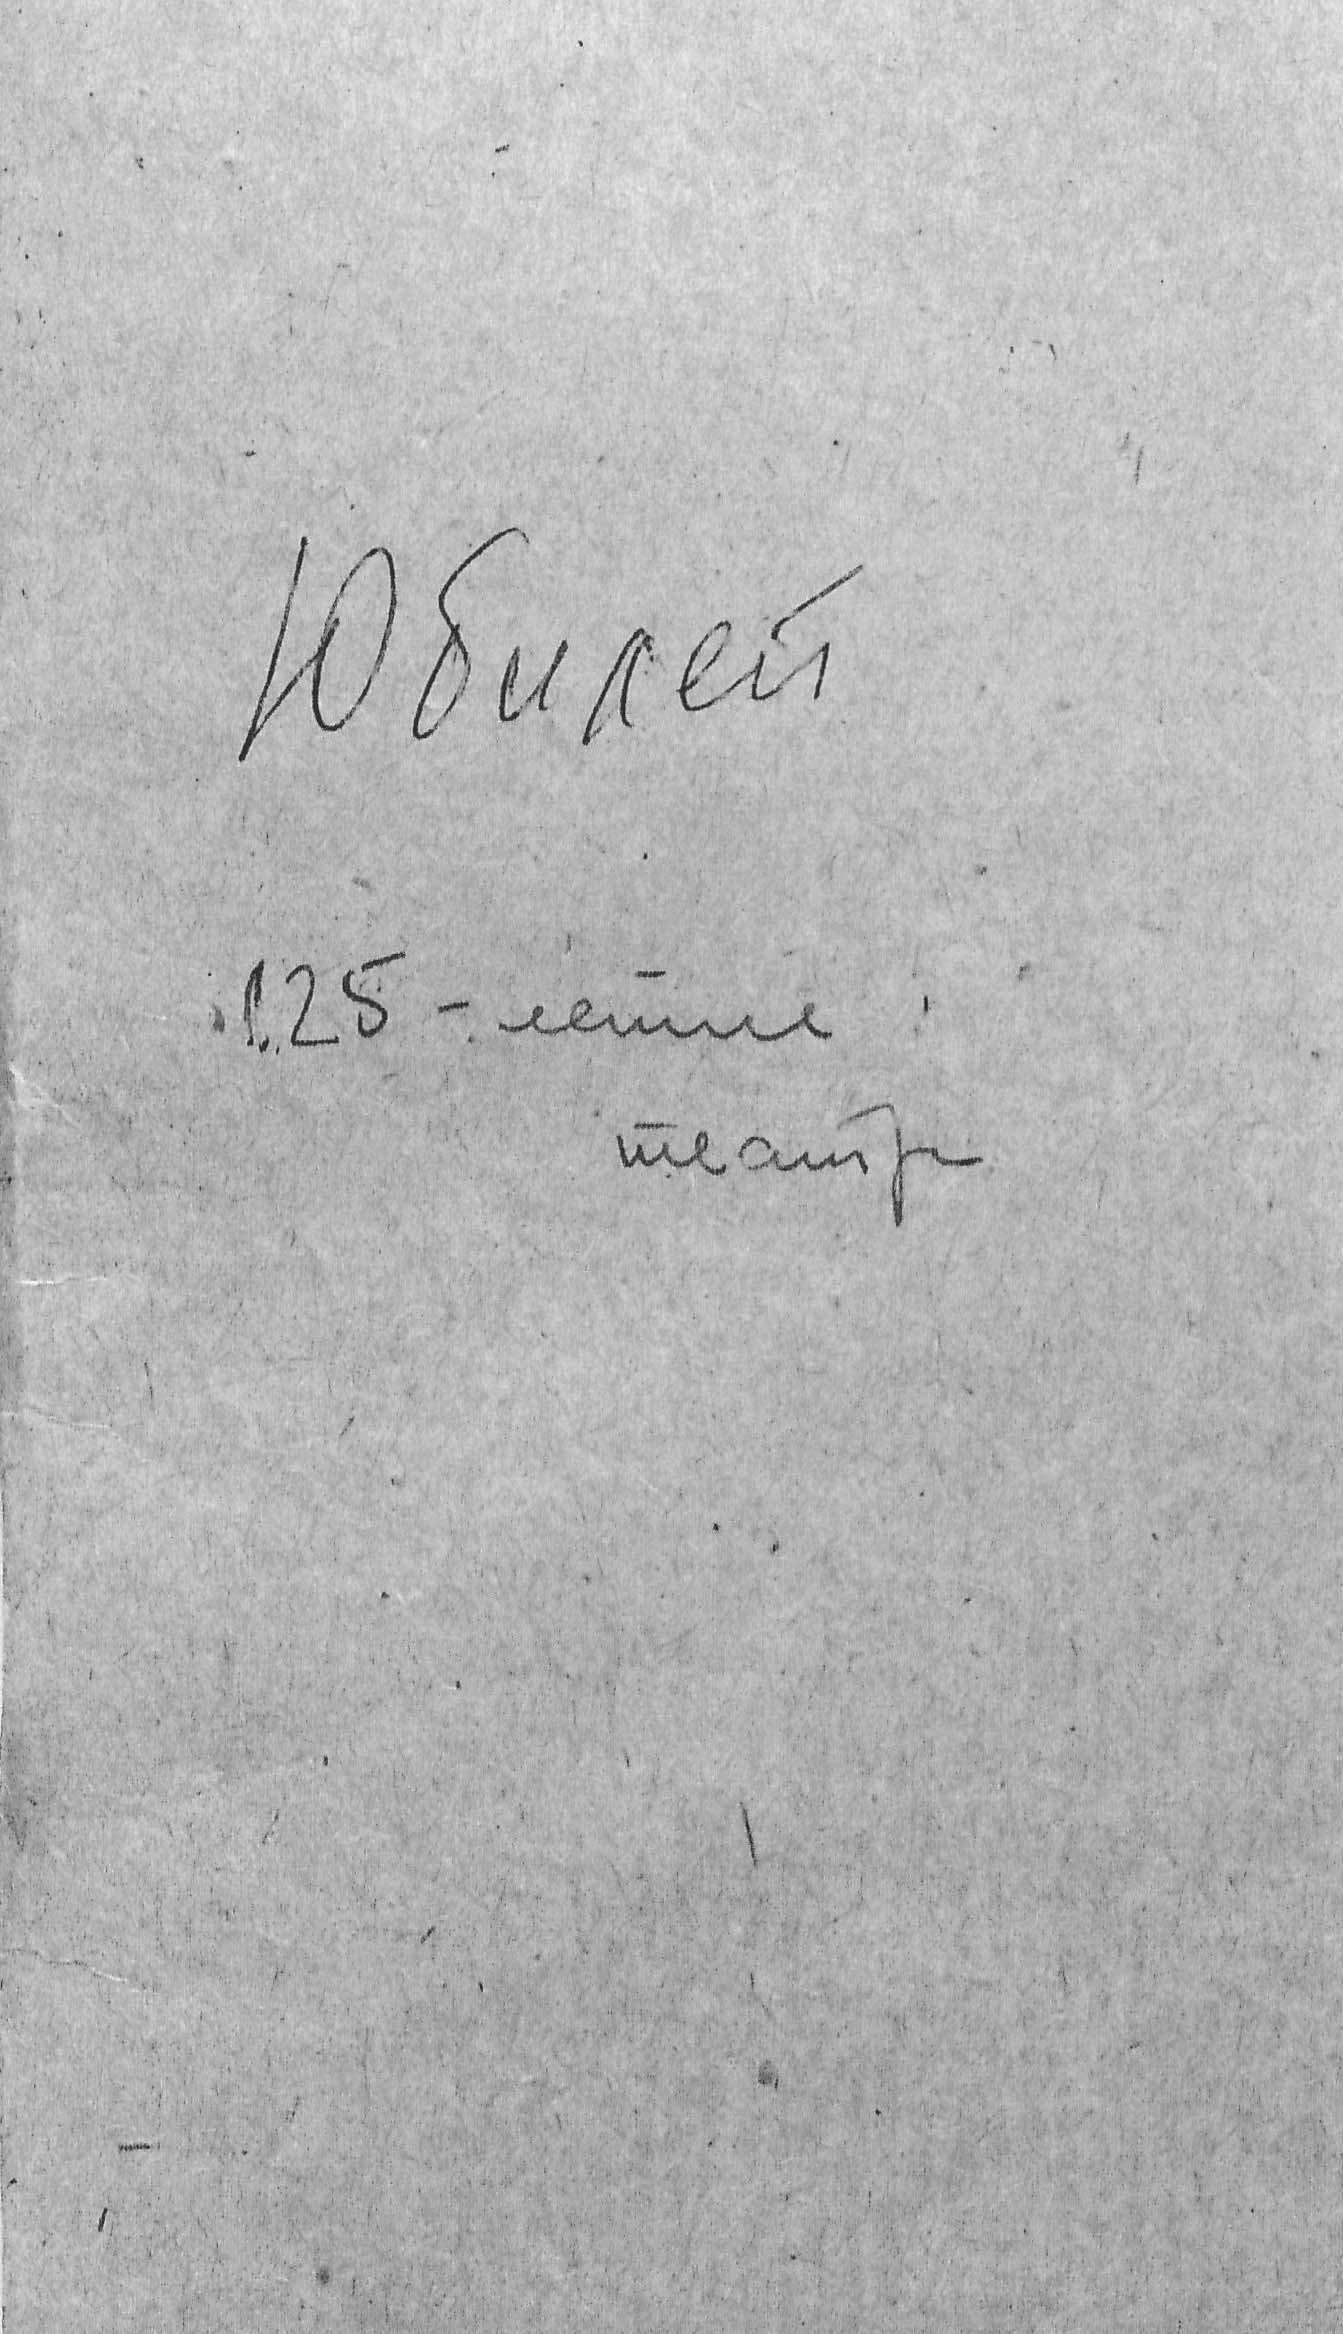 Юбилей
125-летие
театра